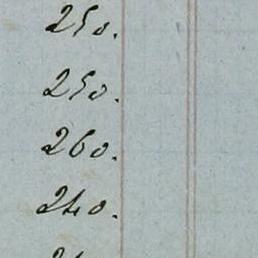 250.
250.
260.
240.